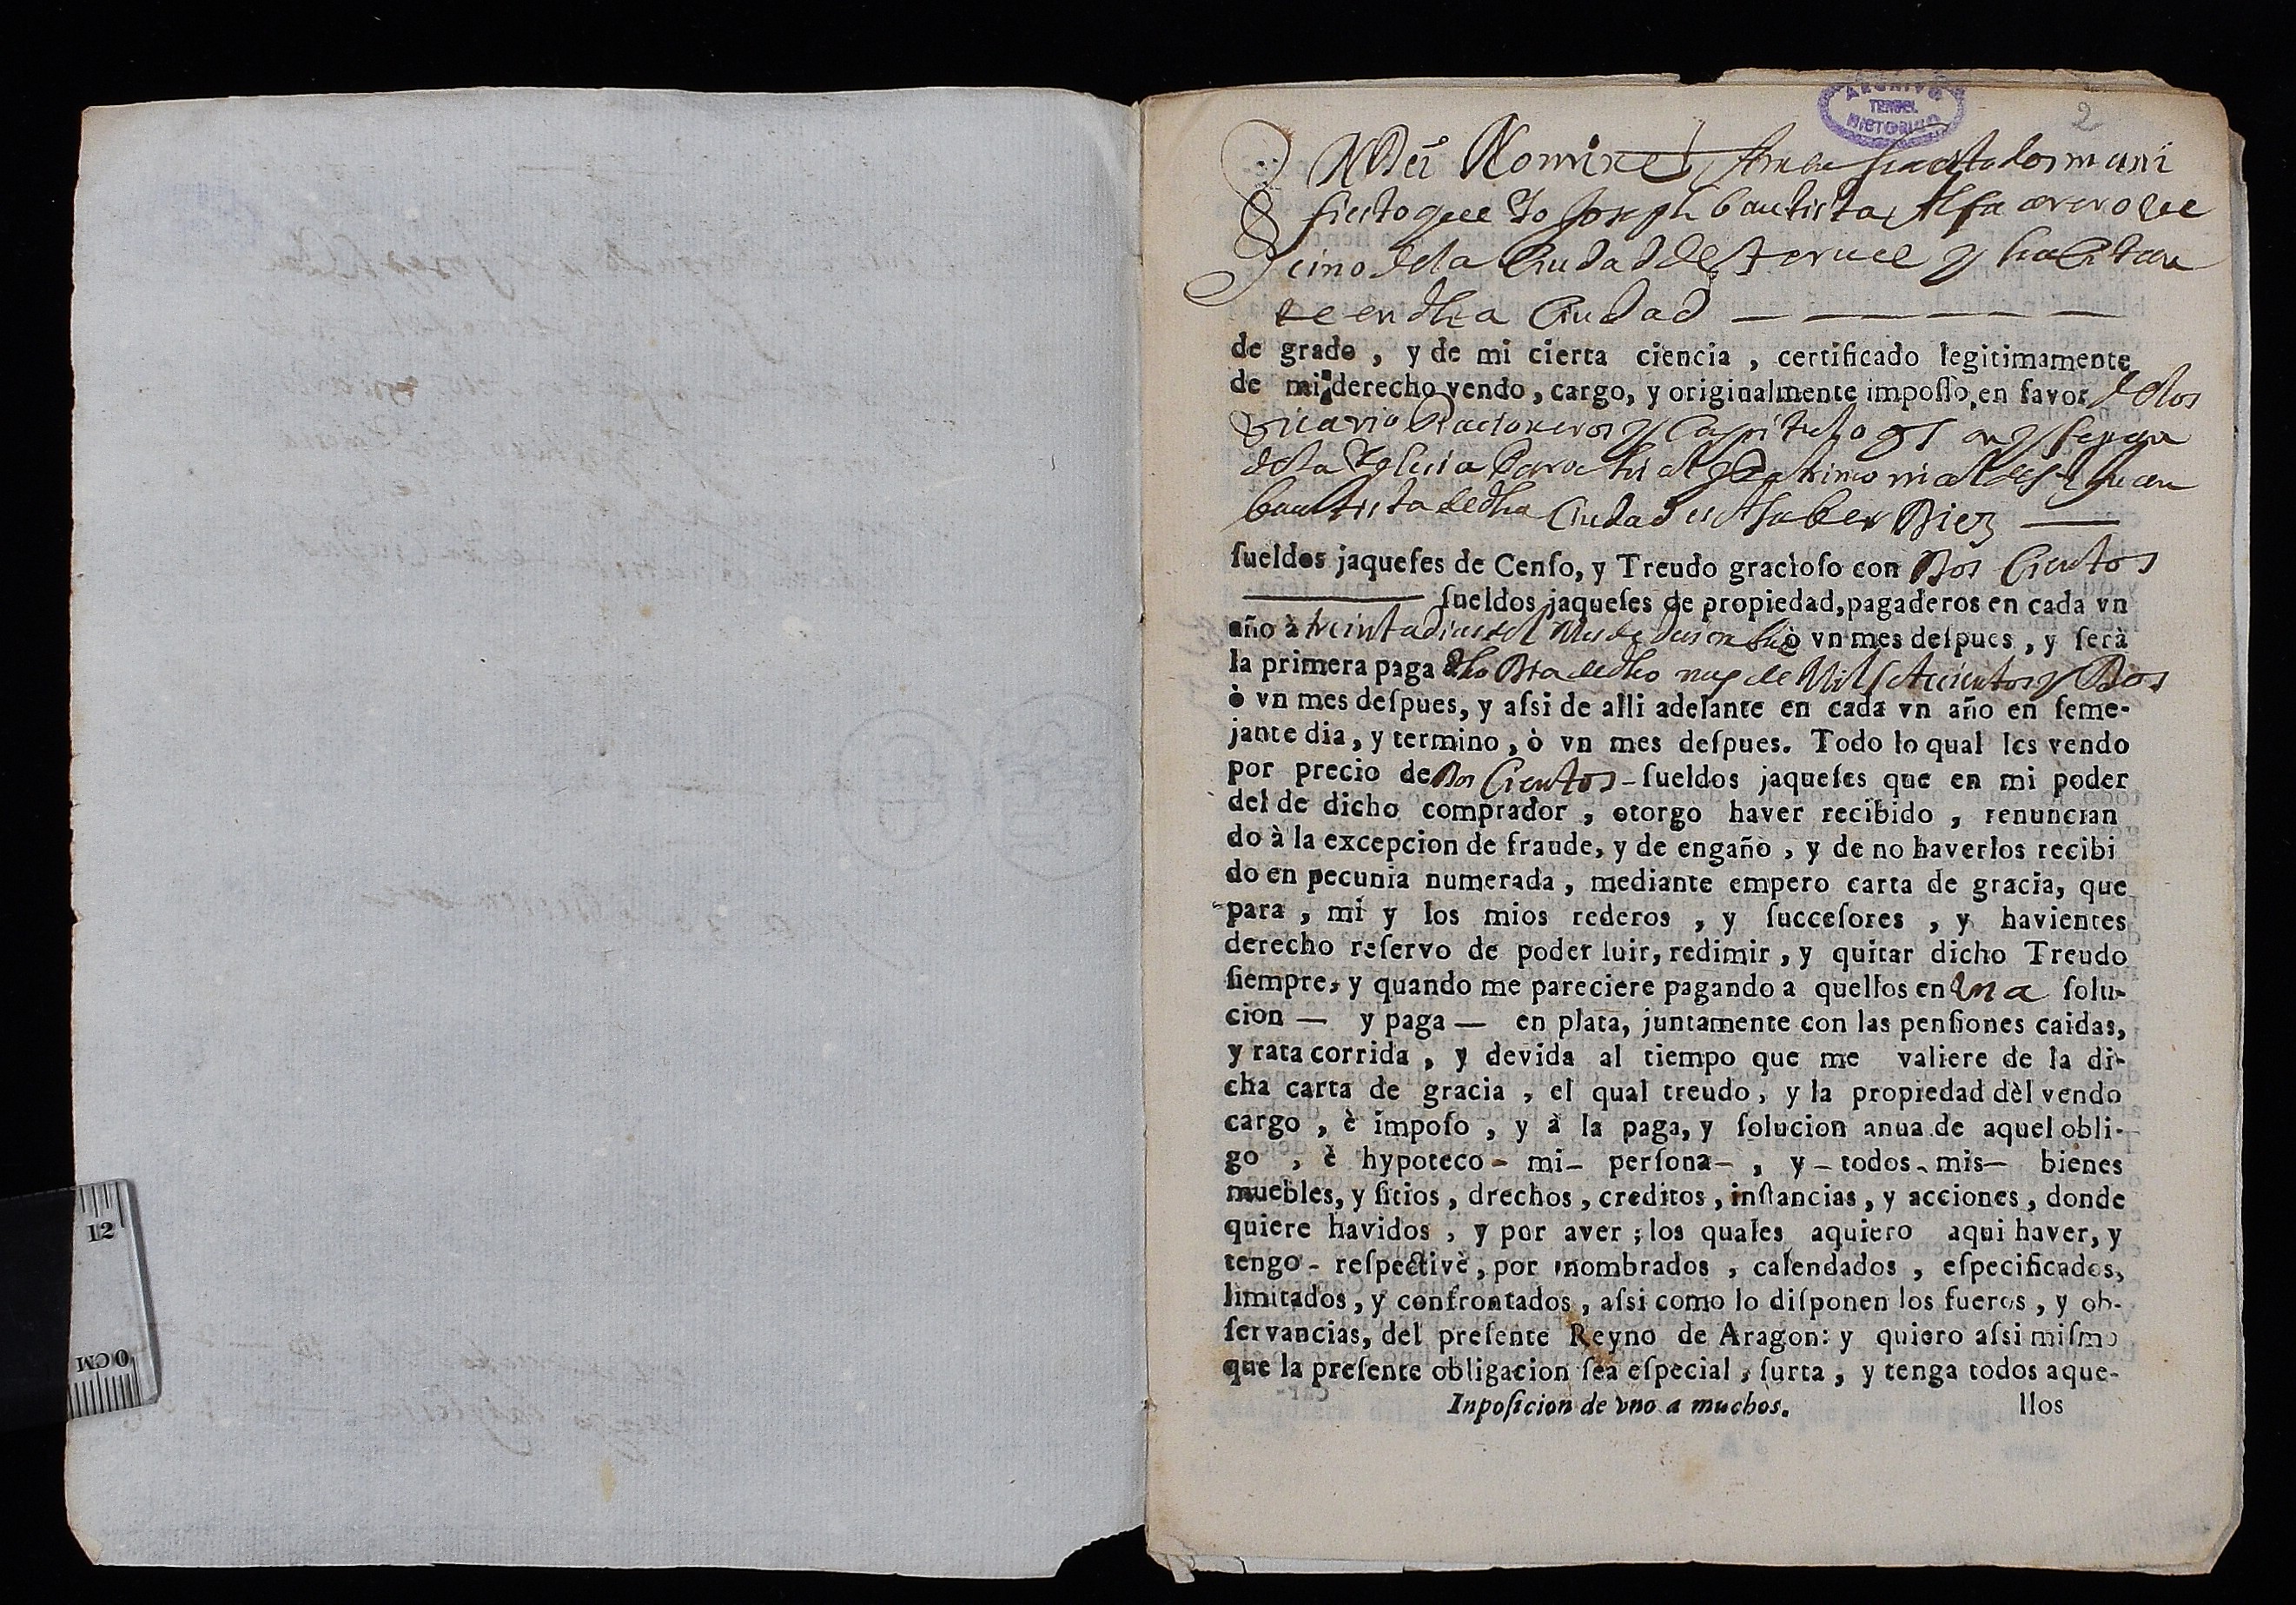 ARCHIVO
TERUEL
HISTORICO
2
IN Dei Nomine Amen sea a todos mani
fiesto que Yo Joseph bautista Alfaarero ve
cino dela Ciudad de Teruel y habitan
te en dha Ciudad
de grado, y de mi cierta ciencia, certificado legitimamente
de mi derecho vendo, cargo, y originalmente impoſſo, en favor delos
Vicario Racioneros y Capitulo
dela Yglesia Parochial y Patrimonial de Sn Juan
bautista de dha Ciudad es Asaber Diez
ſueldos jaqueſes de Cenſo, y Treudo gracioſo con Dos Cientos
ſueldos jaqueſes de propiedad, pagaderos en cada vn
año à treinta dias del Mes de ò vn mes deſpues, y ſerà
la primera paga dho Dia de dho mes de Mil setecientos y Dos
ò vn mes deſpues, y aſsi de alli adelante en cada vn año en ſeme-
jante dia, y termino, ò vn mes deſpues. Todo lo qual les vendo
por precio de Dos Cientos ſueldos jaqueſes que en mi poder
del de dicho comprador, otorgo haver recibido, renuncian
do à la excepcion de fraude, y de engaño, y de no haverlos recibi
do en pecunia numerada, mediante empero carta de gracia, que
para, mi y los mios rederos, y ſucceſores, y havientes
derecho reſervo de poder luir, redimir, y quitar dicho Treudo
ſiempre, y quando me pareciere pagando a quellos en una ſolu-
cion — y paga — en plata, juntamente con las penſiones caidas,
y rata corrida, y devida al tiempo que me valiere de la di-
cha carta de gracia, el qual treudo, y la propiedad dèl vendo
cargo, è impoſo, y à la paga, y ſolucion anua de aquel obli-
go, è hypoteco - mi - perſona -, y - todos - mis — bienes
muebles, y ſitios, drechos, creditos, inſtancias, y acciones, donde
quiere havidos, y por aver; los quales aquiero aqui haver, y
tengo - reſpectivè, por nombrados, calendados, eſpecificados,
limitados, y confrontados, aſsi como lo diſponen los fueros, y ob-
ſervancias, del preſente Reyno de Aragon: y quiero aſsi miſmo
que la preſente obligacion ſea eſpecial, ſurta, y tenga todos aque-
Inpoſicion de vno a muchos. llos
12
0 CM